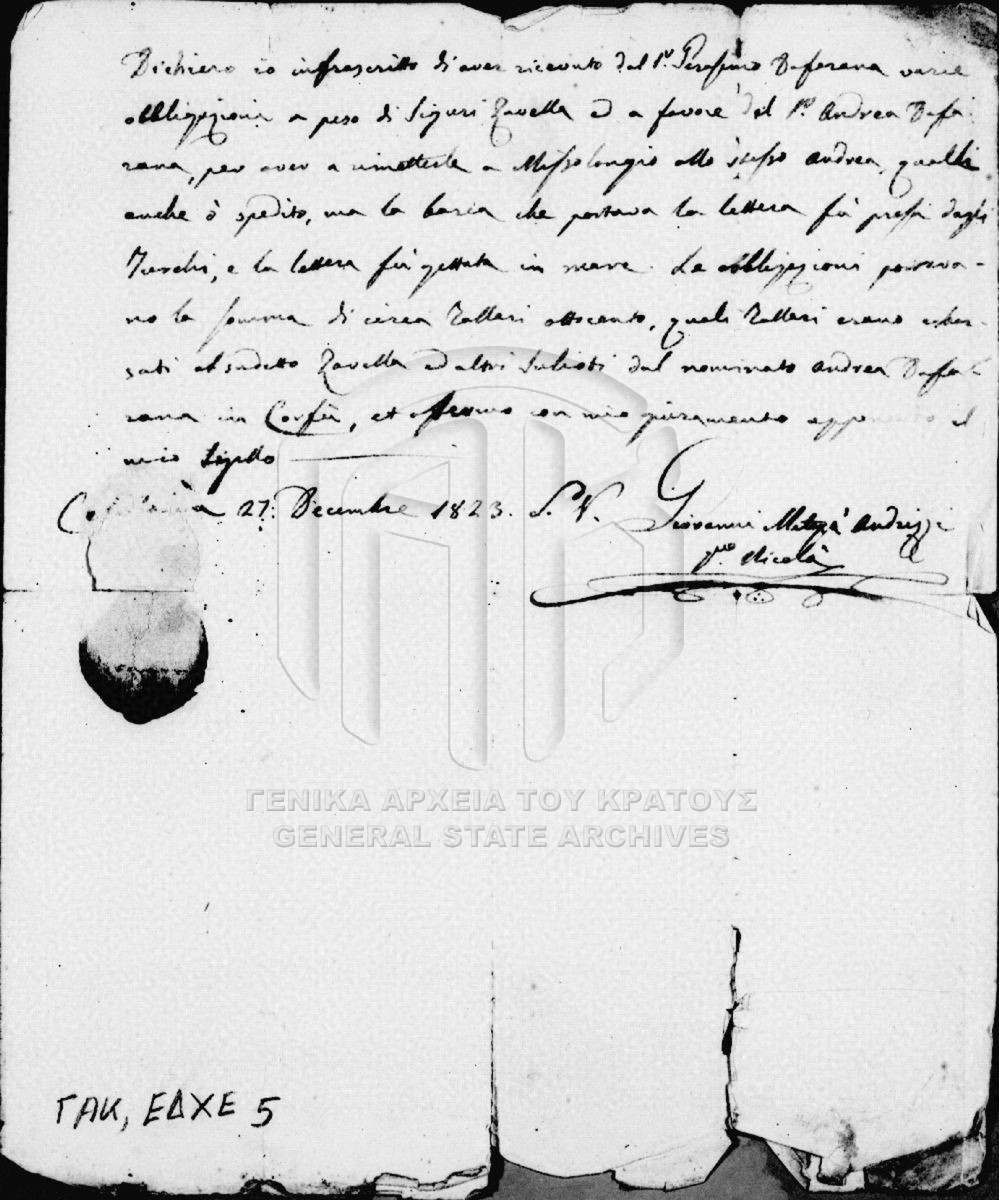 Dichiero io infrascritto di aver ricevuto dal Sr. Serafino Dafarana varie
obbligazioni a peso di Siguri Zavella ed a favore del Sr. Andrea Dafa
rana, per aver a rimetterle a Missolongio allo stesso Andrea, qualli
anche ò spedito, ma la barca che portava la lettera fù presa dagli
Turchi, e la lettera fù gettata in mare. Le obbligazioni portava-
no la somma di circa Talleri ottocento, quali Talleri erano esbor-
sati al sudetto Zavella ed altri Sulioti dal nominato Andrea Dafa
rana in Corfù, et affermo con mio giuramento apponendo il
mio Sigillo
27. Decembre 1823. S. N. Giovanni Andrizzi
qm. Nicolà
ΓΕΝΙΚΑ ΑΡΧΕΙΑ ΤΟΥ ΚΡΑΤΟΥΣ
GENERAL STATE ARCHIVES
ΓΑΚ, ΕΔΧΕ 5